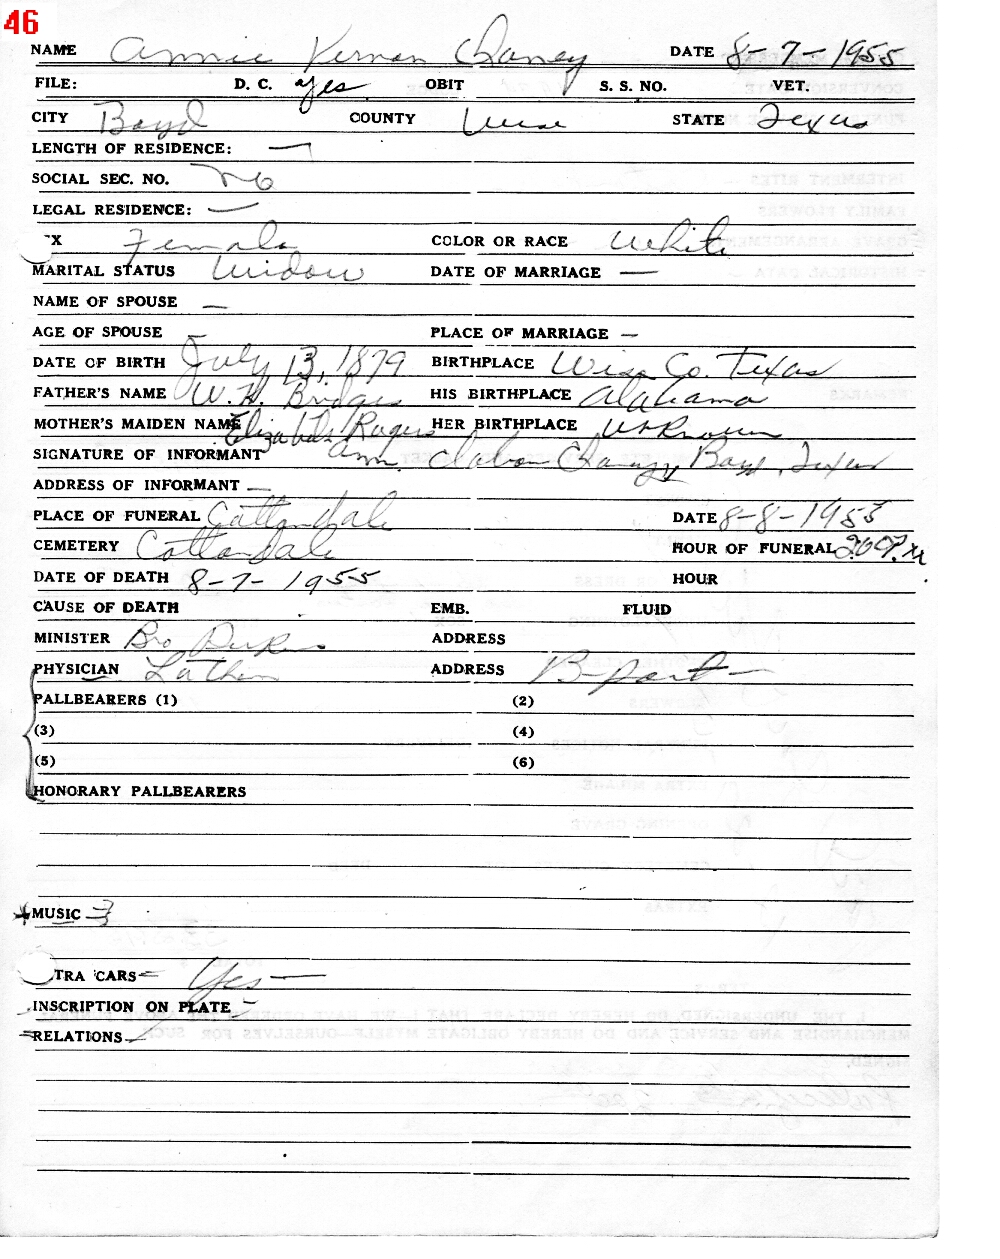 46
NAME Annie Vernon Chaney DATE 8-7-1955
FILE: D. C. yes OBIT S. S. NO. VET.
CITY Boyd COUNTY Wise STATE Texas
LENGTH OF RESIDENCE: —
SOCIAL SEC. NO. No
LEGAL RESIDENCE: —
X Female COLOR OR RACE White
MARITAL STATUS Widow DATE OF MARRIAGE —
NAME OF SPOUSE —
AGE OF SPOUSE — PLACE OF MARRIAGE —
DATE OF BIRTH July 13, 1879 BIRTHPLACE Wise Co. Texas
FATHER'S NAME W. H. Bridges HIS BIRTHPLACE Alabama
MOTHER'S MAIDEN NAME Elizabeth Rogers HER BIRTHPLACE Unknown
SIGNATURE OF INFORMANT Chaney, Boyd, Texas
ADDRESS OF INFORMANT —
PLACE OF FUNERAL Cottondale DATE 8-8-1955
CEMETERY Cottondale HOUR OF FUNERAL 2:00 P.M
DATE OF DEATH 8-7-1955 HOUR
CAUSE OF DEATH EMB. FLUID
MINISTER Bro ADDRESS
PHYSICIAN ADDRESS B-port —
PALLBEARERS (1) (2)
(3) (4)
(5) (6)
HONORARY PALLBEARERS
MUSIC
TRA CARS — Yes —
INSCRIPTION ON PLATE —
RELATIONS —